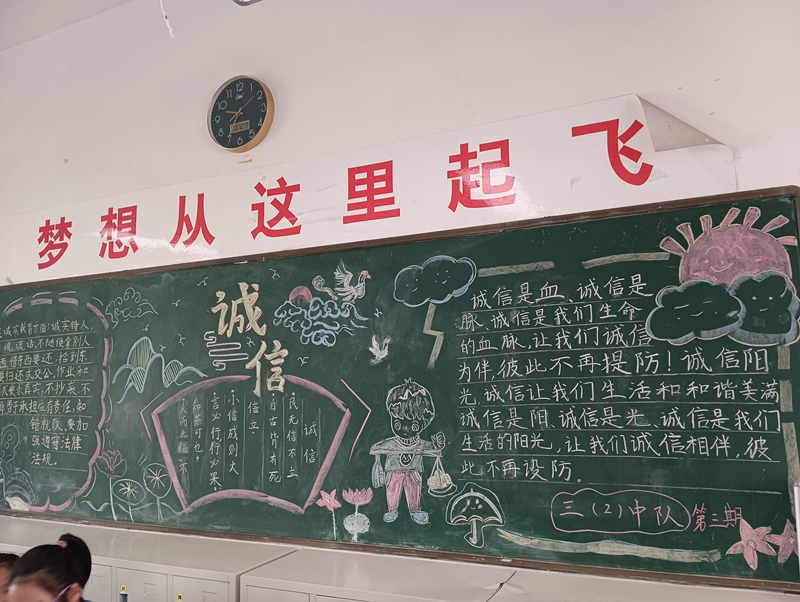 梦想从这里起飞
诚信
诚信教育方面:诚实待人,
还,拾到东
要归还或交公,作业和
真实,不抄袭,不
承担应有责任,知
错就改,要加
强遵守法律
法规。
诚信
民无信不立
自古皆有死
信立。
小信成则大
言必行行必果
诚信是血、诚信是
脉、诚信是我们生命
的血、脉,让我们诚信
为伴,彼此不再提防!诚信阳
光,诚信让我们生活和和谐美满
诚信是阳、诚信是光、诚信是我们
生活的阳光,让我们诚信相伴,彼
此不再设防。
三(2)中队 第三期